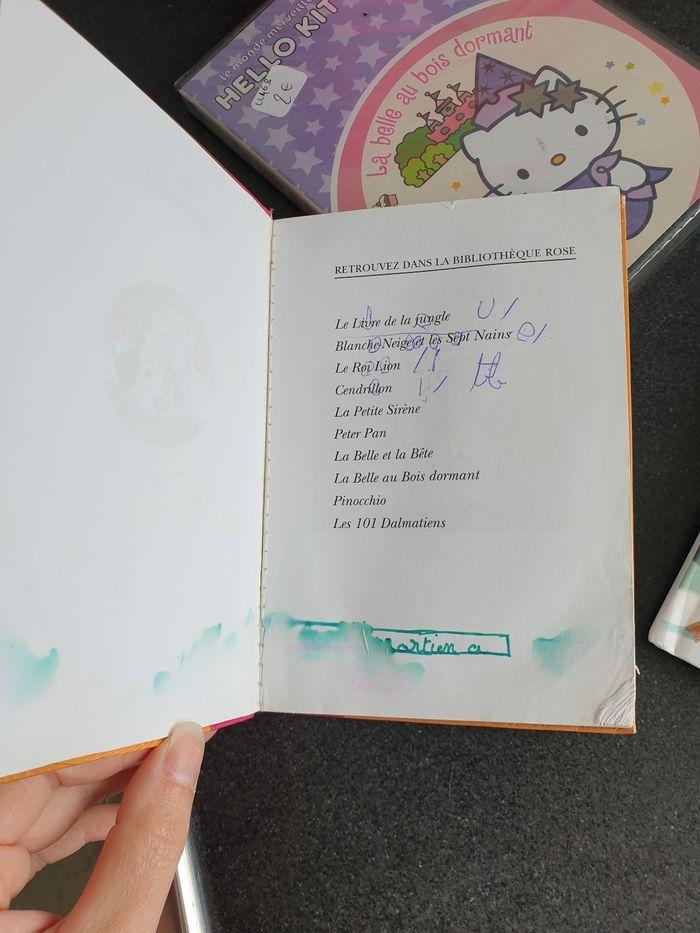 Le monde merveill
HELLO KIT
2€
La belle au bois dormant
RETROUVEZ DANS LA BIBLIOTHÈQUE ROSE
Le Livre de la jungle
Blanche-Neige et les Sept Nains
Le Roi Lion
Cendrillon
La Petite Sirène
Peter Pan
La Belle et la Bête
La Belle au Bois dormant
Pinocchio
Les 101 Dalmatiens
artien a